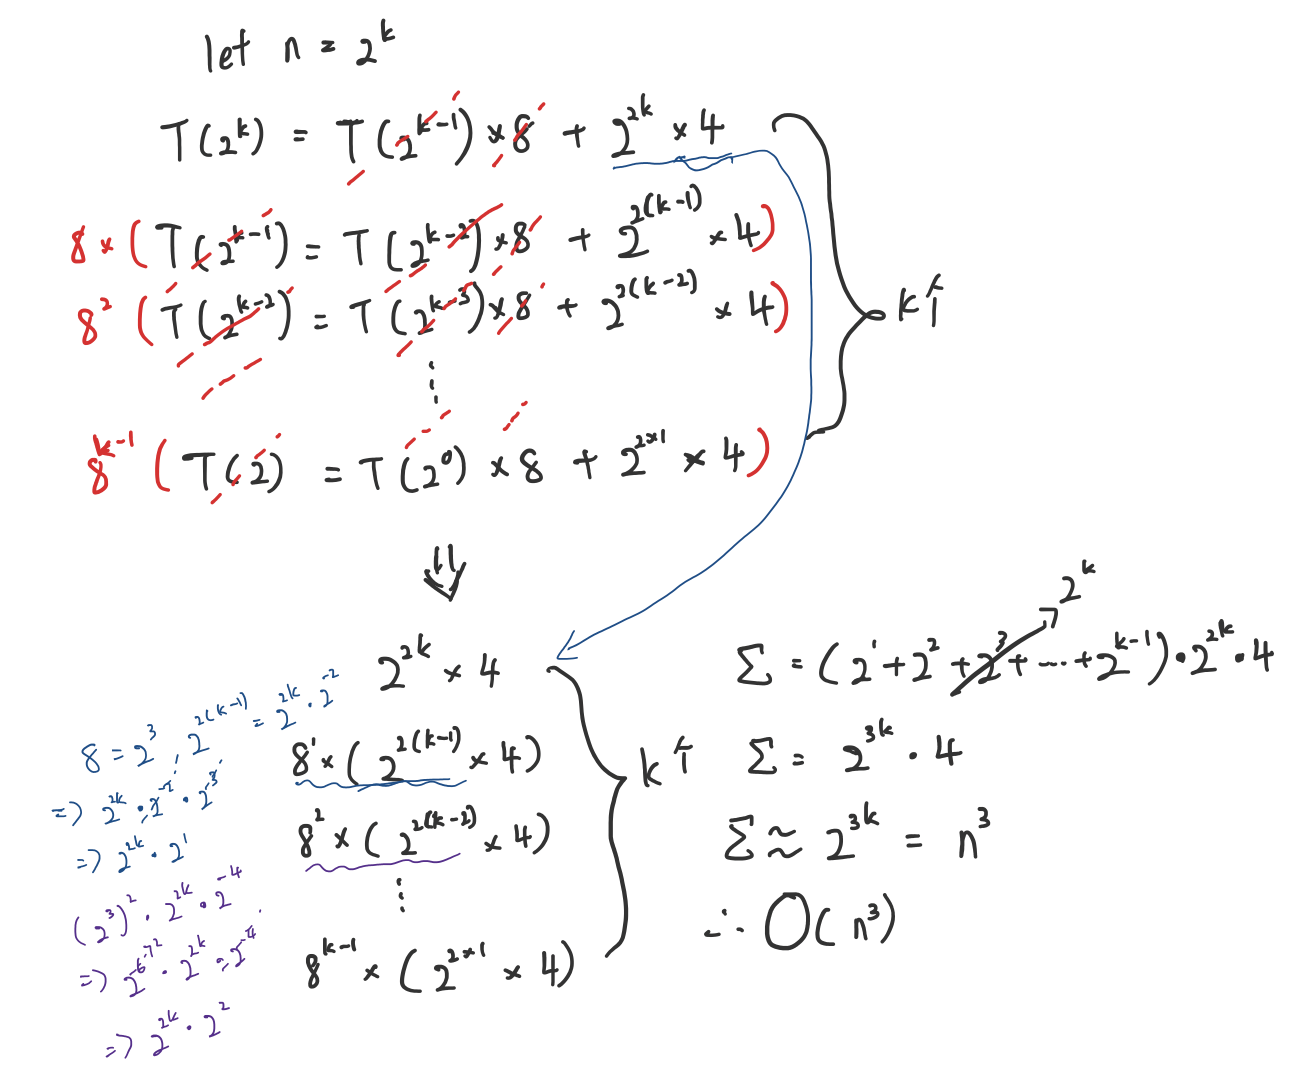 let n = 2^k
T(2^k) = T(2^{k-1}) × 8 + 2^{2k} × 4
8 × (T(2^{k-1}) = T(2^{k-2}) × 8 + 2^{2(k-1)} × 4)
8^2 (T(2^{k-2}) = T(2^{k-3}) × 8 + 2^{2(k-2)} × 4)
k个
⋮
8^{k-1} (T(2) = T(2^0) × 8 + 2^{2×1} × 4)
⇓
2^{2k} × 4
8^1 × (2^{2(k-1)} × 4)
8^2 × (2^{2(k-2)} × 4)
⋮
8^{k-1} × (2^{2×1} × 4)
k个
8 = 2^3, 2^{2(k-1)} = 2^{2k} · 2^{-2}
=> 2^{2k} · 2^{-2} · 2^3
=> 2^{2k} · 2^1
(2^3)^2 · 2^{2k} · 2^{-4}
· 2^{2k} · 2^{-4}
=> 2^{2k} · 2^2
2^k
Σ = (2^1 + 2^2 + 2^3 + ... + 2^{k-1}) · 2^{2k} · 4
Σ = 2^{3k} · 4
Σ ≈ 2^{3k} = n^3
∴ O(n^3)